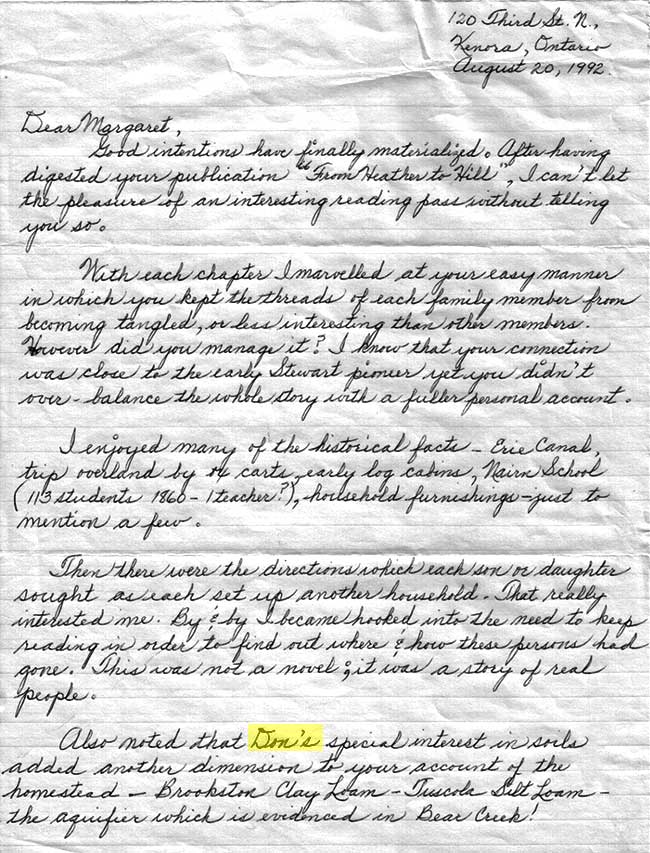 120 Third St. N.,
Kenora, Ontario
August 20, 1992.
Dear Margaret,
Good intentions have finally materialized. After having
digested your publication "From Heather to Hill", I can't let
the pleasure of an interesting reading pass without telling
you so.
With each chapter I marvelled at your easy manner
in which you kept the threads of each family member from
becoming tangled, or less interesting than other members.
However did you manage it? I know that your connection
was close to the early Stewart pioneer yet you didn't
over-balance the whole story with a fuller personal account.
I enjoyed many of the historical facts - Erie Canal,
trip overland by ox carts, early log cabins, Nairn School
(113 students 1860 - 1 teacher?), household furnishings - just to
mention a few.
Then there were the directions which each son or daughter
sought as each set up another household. That really
interested me. By & by I became hooked into the need to keep
reading in order to find out where & how these persons had
gone. This was not a novel; it was a story of real
people.
Also noted that Don's special interest in soils
added another dimension to your account of the
homestead - Brookston Clay Loam - Tuscola Silt Loam -
the aquifier which is evidenced in Bear Creek!